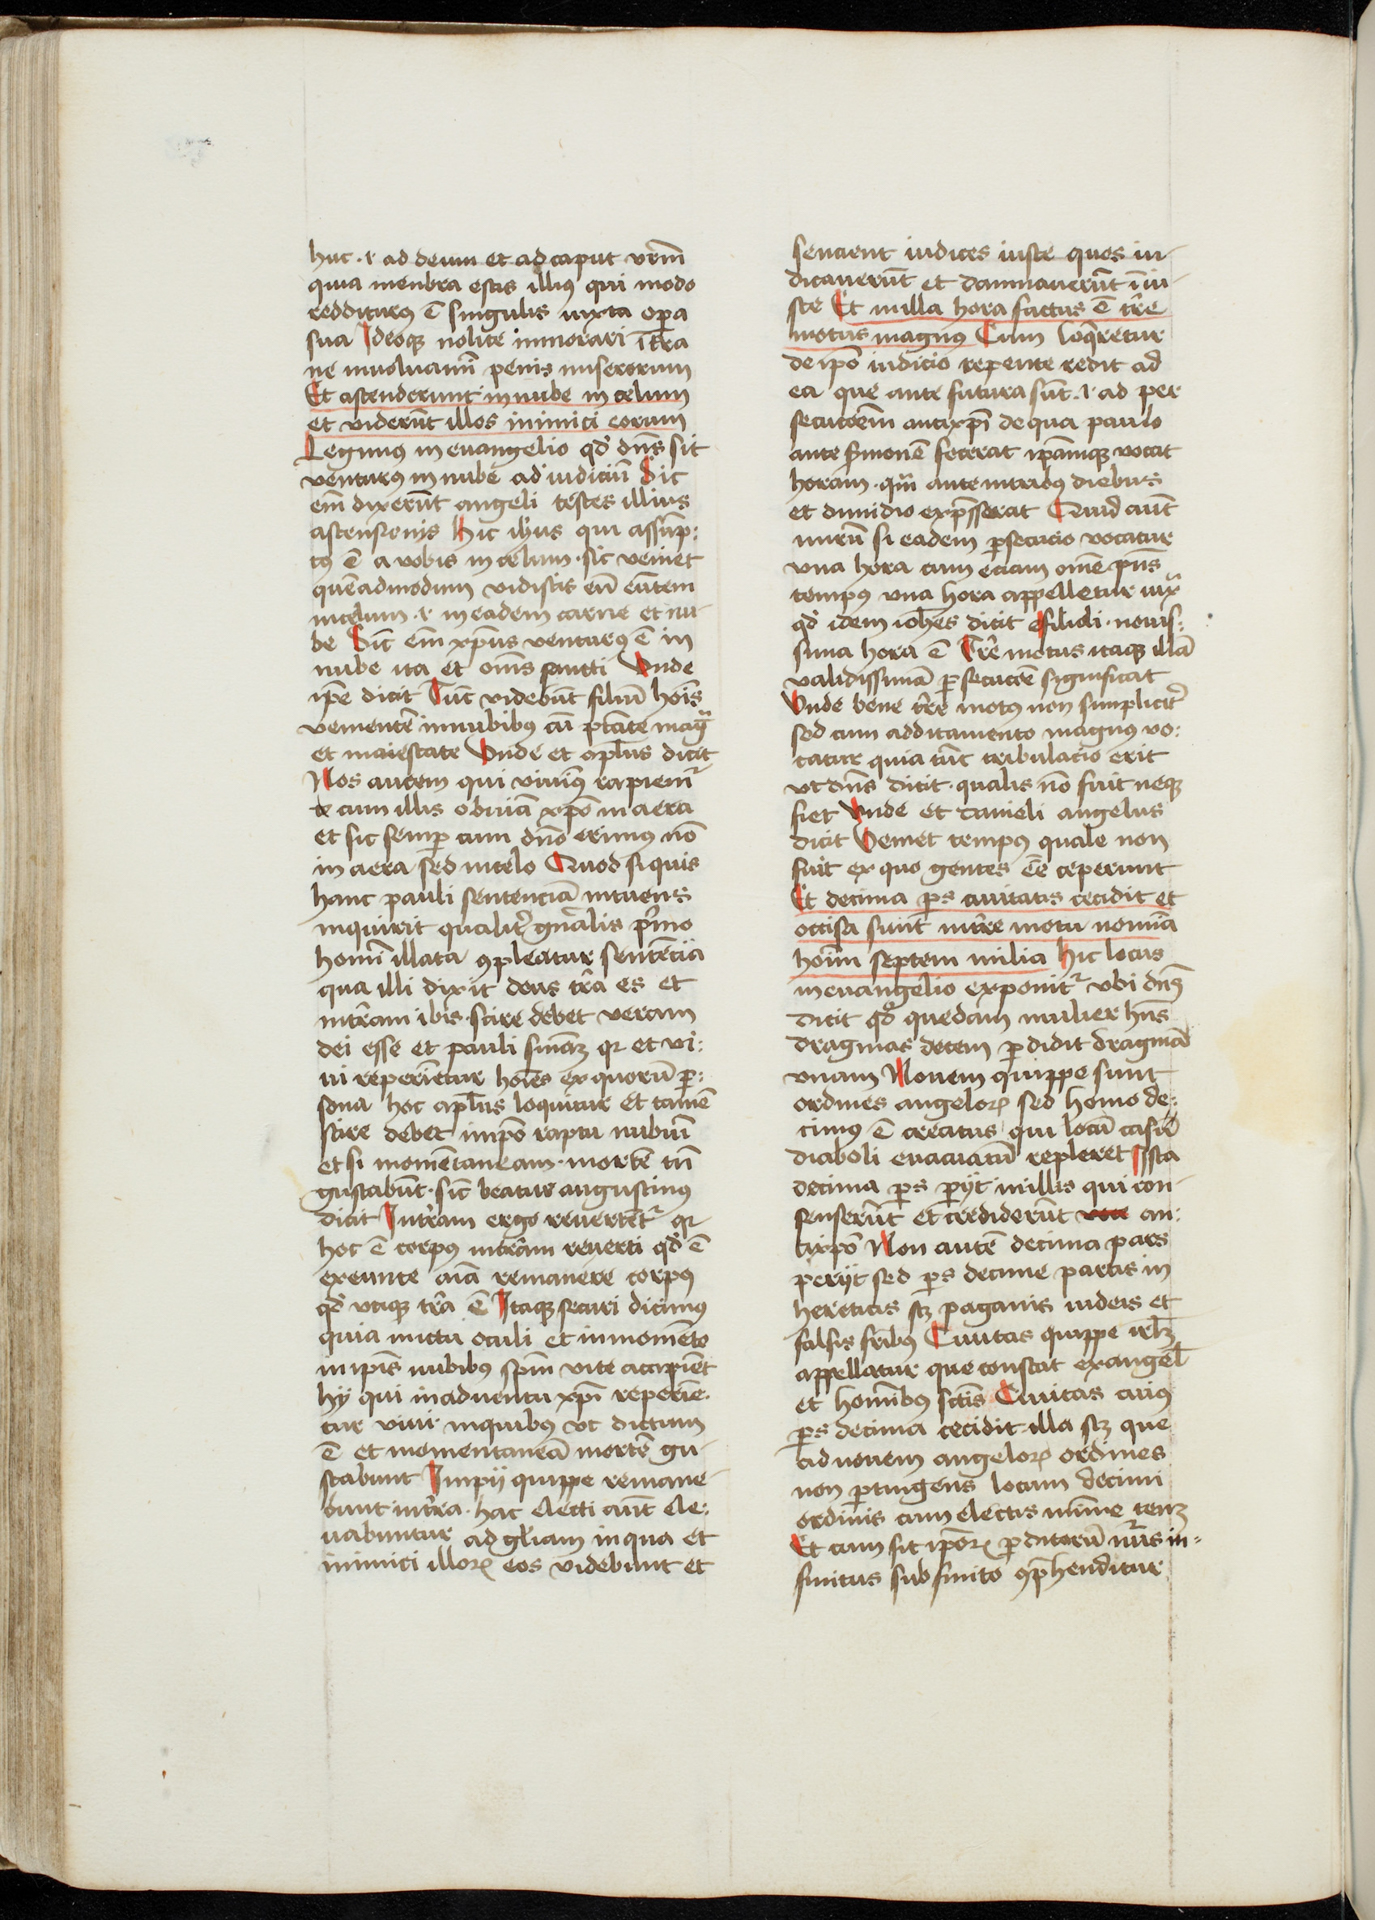 huc · i · ad deum et ad caput vr̄m
quia menbra estis illiꝰ qui modo
redditurꝰ ē singulis iuxta oꝑa
sua Ideoqꝫ nolite inmorari ī tr̄a
ne inuoluamī penis miserorum
Et ascenderunt in nube in celum
et viderūt illos inimici eorum
Legimus in euangelio qd̓ dn̄s sit
venturꝰ in nube ad iudiciū Sic
em̄ dixerūt angeli testes illius
ascensionis Hic ih̄us qui assūp:
tꝰ ē a vobis in celum · sic veniet
quēadmodum vidistis eū eūtem
in celum · i · in eadem carne et nu-
be Sic̄ em̄ xp̄us venturꝰ ē in
nube ita et om̄s sancti Unde
ip̄e dicit Tūc videbūt filiū hoīs
venientē in nubibꝰ cū ptāte mag̃
et maiestate Unde et apl̄us dicit
Nos autem qui viuimꝰ rapiemꝛ̃
cum illis obuiā xp̄o in aera
et sic semꝑ cum dn̄o erimus nō
in aera sed in celo Quod si quis
hanc pauli sentenciā intuens
inquirit qualit̓ gn̄alis p̓mo
homī illata ꝯpleatur sentēcia
qua illi dixit deus tr̄a es et
in tr̄am ibis · scire debet veram
dei esse et pauli sn̄iaꝫ qꝛ et vi:
ui reperientur hoīes ex quorū ꝑ:
sona hoc apl̄us loquitur et tamē
scire debet in ip̄o raptu nubiū
et si momētaneam · mortē tn̄
gustabūt · sic̄ beatus augustinus
dicit In tr̄am ergo reuertētꝛ̃ qꝛ
hoc ē corpꝰ in tr̄am reuerti qd̓ ē
exeunte aīa remanere corpꝰ
qd̓ vtiqꝫ tr̄a ē Itaqꝫ securi dicimus
quia in ictu oculi et in momēto
in ip̄is nubibꝰ sp̄m vite accipiēt
hij qui in aduentu xp̄i reperiē-
tur viui · in quibus vt dictum
ē et momentaneā mortē gu-
stabunt Impij quippe remane-
bunt in tr̄a · hac electi aūt ele:
uabuntur ad gl̄iam in qua et
inimici illoꝝ eos videbunt et
sencient iudices iuste quos iu-
dicauerūt et damnauerūt iniu-
ste Et in illa hora factus ē tr̄e
motus magnus Cum loq̄retur
de ip̄o iudicio repente redit ad
ea que ante futura sūt · i · ad per
secucōem antixp̄i de qua paulo
ante s̓monē fecerat ip̄amqꝫ vocat
horam · qm̄ ante in tribꝰ diebus
et dimidio exp̄sserat Quid aūt
mirū si eadem ꝑsecucio vocatur
vna hora cum eciam om̄e p̄ns
tempꝰ vna hora appelletur iux̃
qd̓ idem ioh̄es dicit Filioli · nouis:
sima hora ē Tr̄e motus itaqꝫ illā
validissimā ꝑsecucōē significat
Unde bene tr̄e motꝰ non simplicit̓
sed cum additamento magnus vo:
catur quia tūc tribulacio erit
vt dn̄s dicit · qualis nō fuit neqꝫ
fiet Unde et danieli angelus
dicit Veniet tempꝰ quale non
fuit ex quo gentes ēe ceperunt
Et decima ꝑs ciuitatis cecidit et
occisa sunt in tr̄e motu nomina
hoīm septem milia Hic locus
in euangelio exponitꝛ̃ vbi dn̄s
dicit qd̓ quedam mulier hn̄s
dragmas decem ꝑdidit dragmā
vnam Nouem quippe sunt
ordines angeloꝝ sed homo de:
cimꝰ ē creatus qui locū casū
diaboli euacuatū repleret Ista
decima ꝑs ꝑijt in illis qui con-
senserūt et crediderūt an:
tixp̄o Non autē decima pars
perijt sed ꝑs decime partis in
hereticis scꝫ paganis iudeis et
falsis fr̄ibꝰ Ciuitas quippe irl̄m
appellatur que constat ex angel̄
et homībꝰ sc̄tis Ciuitas cuiꝰ
ꝑs decima cecidit illa scꝫ que
ad nouem angeloꝝ ordines
non ꝑtingens locum decimi
ordinis cum electis minīe tenꝫ
Et cum sit ip̄oꝝ ꝑditorū nūs in-
finitus sub finito ꝯp̄henditur